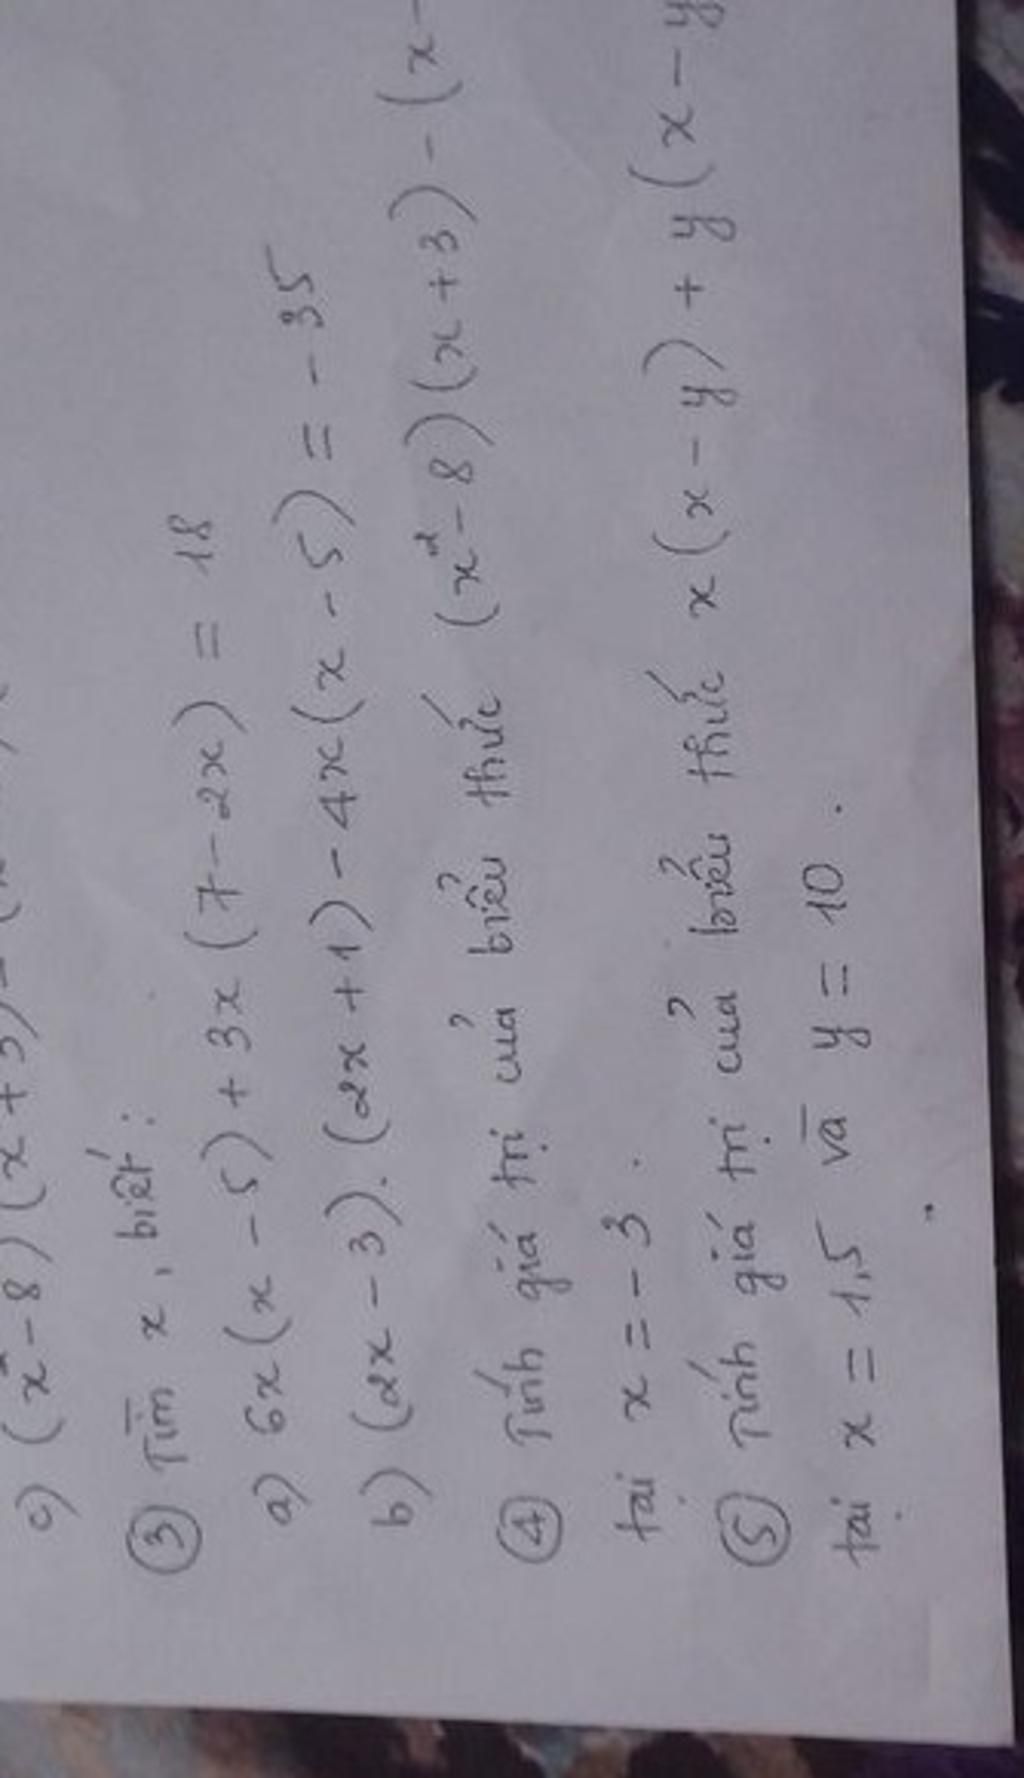 c) (x² - 8)(x + 3) - (x
③ Tìm x, biết:
a) 6x(x - 5) + 3x(7 - 2x) = 18
b) (2x - 3).(2x + 1) - 4x(x - 5) = -35
④ Tính giá trị của biểu thức (x² - 8)(x + 3) - (x -
tại x = -3.
⑤ Tính giá trị của biểu thức x(x - y) + y(x - y
tại x = 1,5 và y = 10.